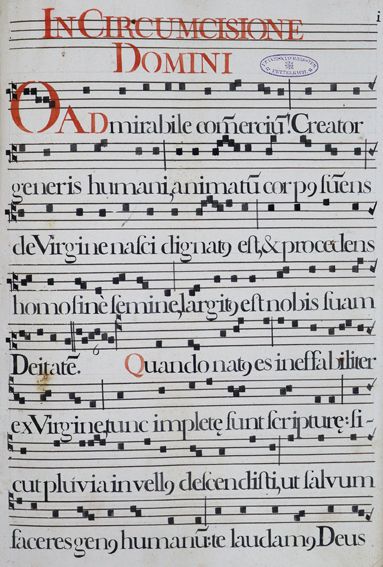 i
IN CIRCUMCISIONE
DOMINI
O ADmirabile com̄erciū! Creator
generis humani, animatū corpꝯ sūens
de Virgine nasci dignatꝯ est, & procedens
homo sinè semine, largitꝯ est nobis suam
Deitatē. Quando natꝯ es ineffabiliter
ex Virgine, tunc impletę sunt scripturę: si-
cut pluvia in vellꝯ descendisti, ut salvum
faceres genꝯ humanū: te laudamꝯ Deus